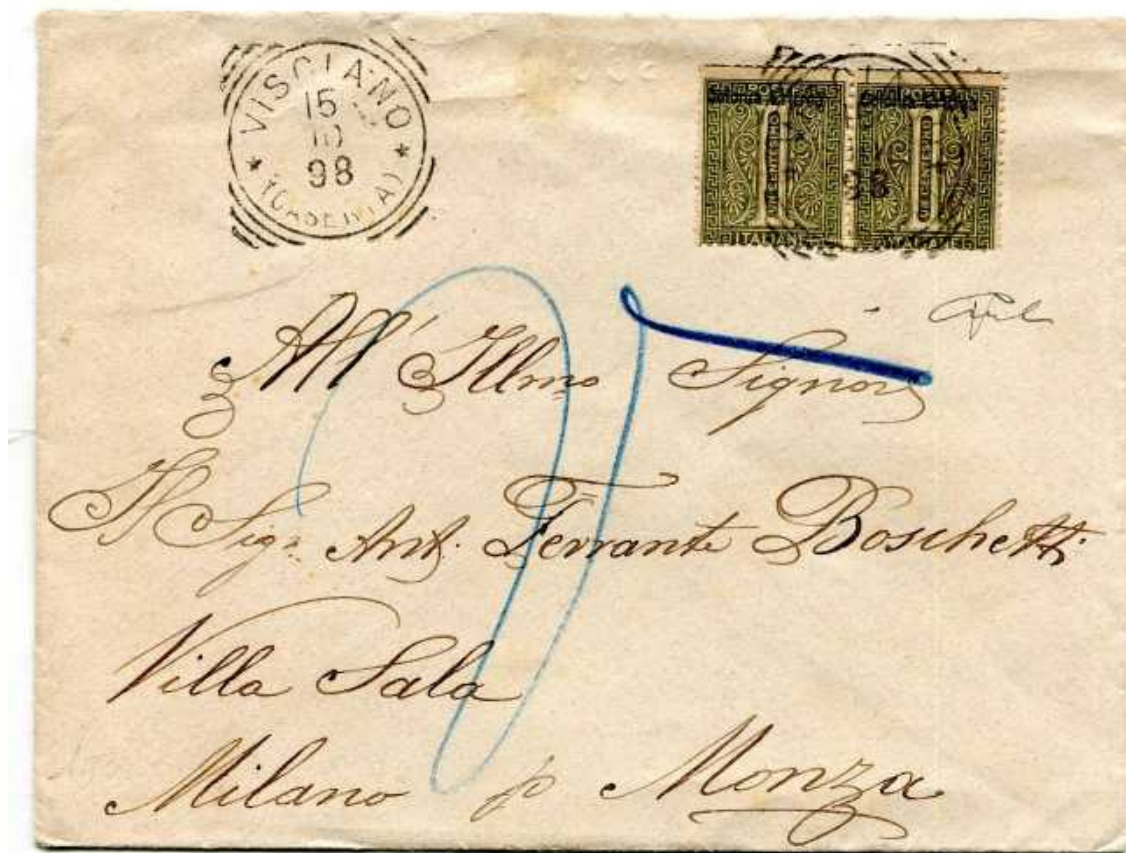 VISCIANO
15
10
98
(CASERTA)
POSTE
UN CENTESIMO
ITALIANE
UN CENTESIMO
ITALIANE
98
All' Illmo Signor
Il Sigr. Ant. Ferrante Boschetti
Villa Sala
Milano p Monza